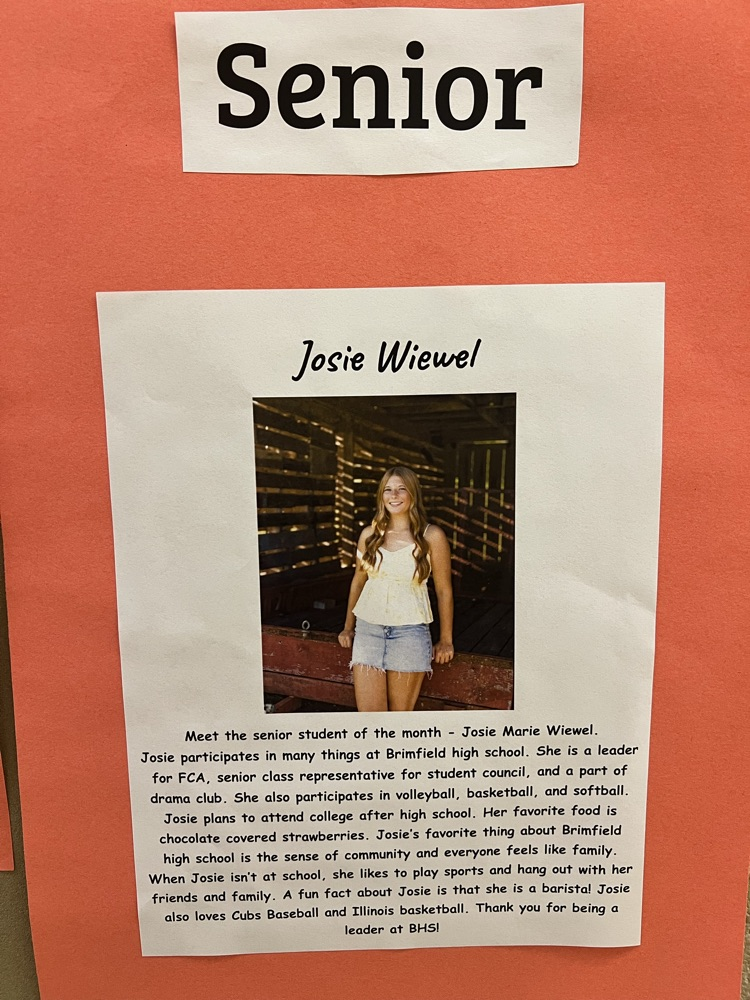 Senior
Josie Wiewel
Meet the senior student of the month - Josie Marie Wiewel.
Josie participates in many things at Brimfield high school. She is a leader
for FCA, senior class representative for student council, and a part of
drama club. She also participates in volleyball, basketball, and softball.
Josie plans to attend college after high school. Her favorite food is
chocolate covered strawberries. Josie's favorite thing about Brimfield
high school is the sense of community and everyone feels like family.
When Josie isn't at school, she likes to play sports and hang out with her
friends and family. A fun fact about Josie is that she is a barista! Josie
also loves Cubs Baseball and Illinois basketball. Thank you for being a
leader at BHS!